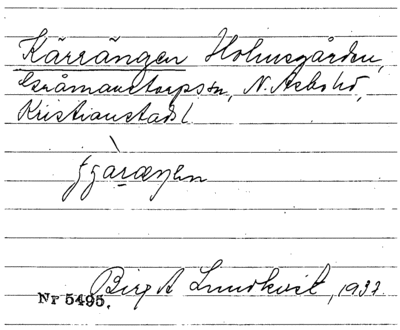 Kärrängen Holmsgården,
Gråmanstorps sn, N. Åsbo hd,
Kristianstads l.
Birg A Lundkvist, 1933
Nr 5495.